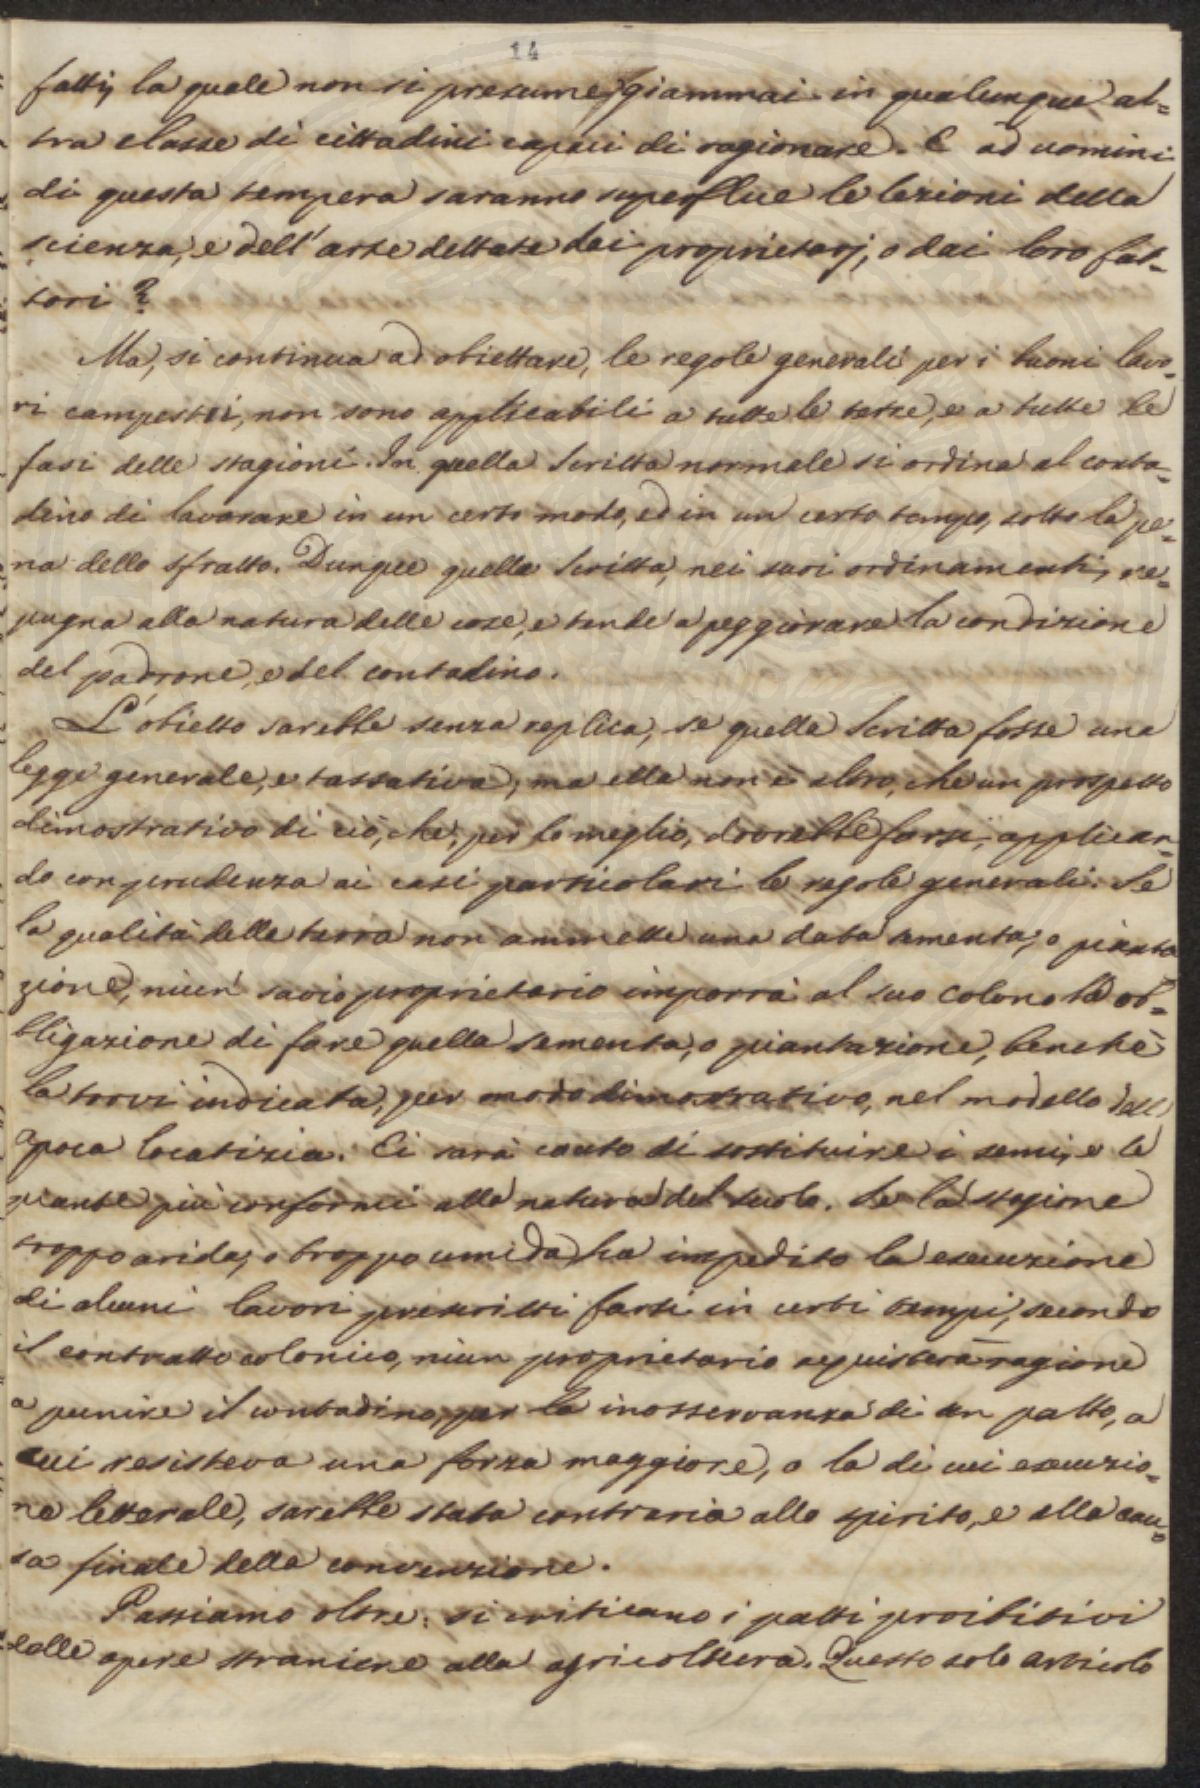 14
fatti, la quale non si presume giammai in qualunque al=
tra classe di cittadini capaci di ragionare. E ad uomini
di questa tempera saranno superflue le lezioni della
scienza, e dell'arte dettate dai proprietarj, o dai loro fat=
tori?
Ma, si continua ad obiettare, le regole generali per i buoni lavo=
ri campestri, non sono applicabili a tutte le terre, e a tutte le
fasi delle stagioni. In quella Scritta normale si ordina al conta=
dino di lavorare in un certo modo, ed in un certo tempo, sotto la pe=
na dello sfratto. Dunque quella Scritta, nei suoi ordinamenti, re=
pugna alla natura delle cose, e tende a peggiorare la condizione
del padrone, e del contadino.
L'obietto sarebbe senza replica, se quella Scritta fosse una
legge generale, e tassativa; ma ella non è altro, che un prospetto
dimostrativo di ciò, che, per lo meglio, dovrebbe farsi, applican=
do con prudenza ai casi particolari le regole generali. Se
la qualità della terra non ammette una data sementa, o pianta
zione, niun savio proprietario imporrà al suo colono la ob=
bligazione di fare quella sementa, o piantazione, benchè
la trovi indicata, per modo dimostrativo, nel modello dell'
apoca locatizia. Ei sarà cauto di sostituire i semi, e le
piante più conformi alla natura del suolo. Se la stagione
troppo arida, o troppo umida ha impedito la esecuzione
di alcuni lavori prescritti farsi in certi tempi, secondo
il contratto colonico, niun proprietario acquisterà ragione
a punire il contadino, per la inosservanza di un patto, a
cui resisteva una forza maggiore, o la di cui esecuzio=
ne letterale, sarebbe stata contraria allo spirito, e alla cau=
sa finale della convenzione.
Passiamo oltre: si criticano i patti proibitivi
delle opere straniere alla agricoltura. Questo solo articolo